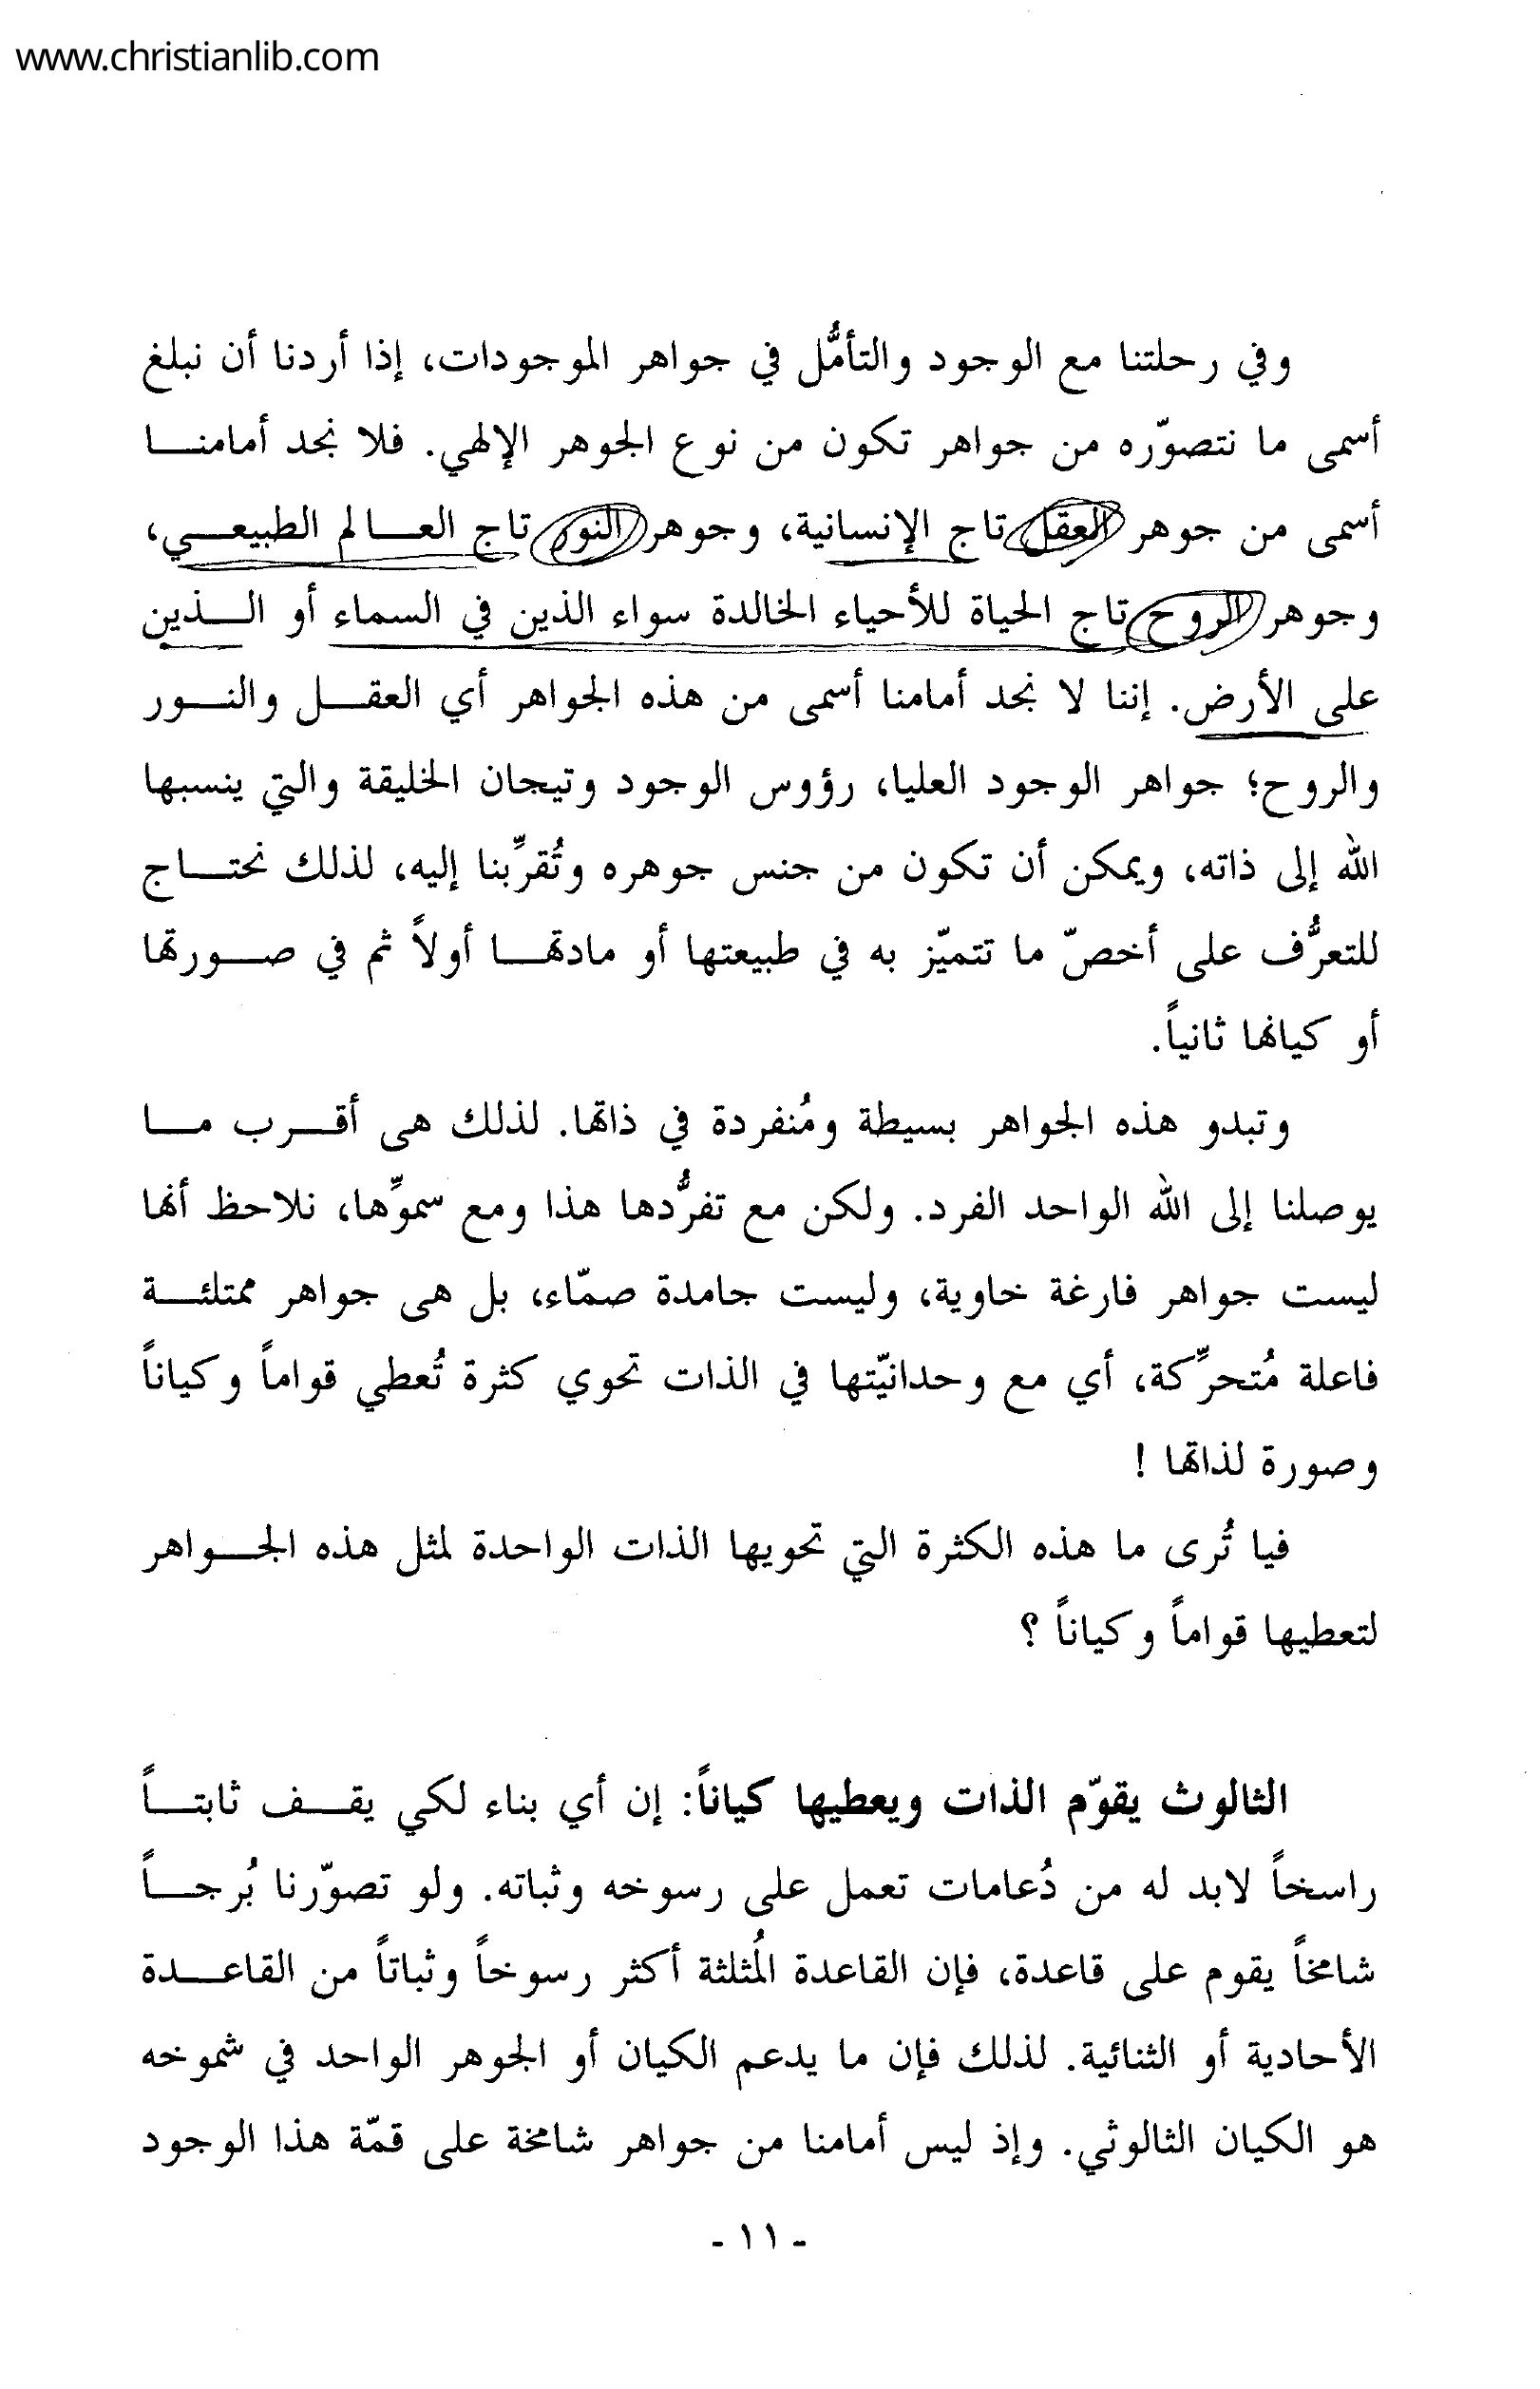 www.christianlib.com
وفي رحلتنا مع الوجود والتأمُّل في جواهر الموجودات، إذا أردنا أن نبلغ
أسمى ما نتصوّره من جواهر تكون من نوع الجوهر الإلهي. فلا نجد أمامنـــا
أسمى من جوهر العقل تاج الإنسانية، وجوهر النور تاج العـــالم الطبيعـــي،
وجوهر الروح تاج الحياة للأحياء الخالدة سواء الذين في السماء أو الـــذين
على الأرض. إننا لا نجد أمامنا أسمى من هذه الجواهر أي العقـــل والنـــور
والروح؛ جواهر الوجود العليا، رؤوس الوجود وتيجان الخليقة والتي ينسبها
الله إلى ذاته، ويمكن أن تكون من جنس جوهره وتُقرِّبنا إليه، لذلك نحتـــاج
للتعرُّف على أخصّ ما تتميّز به في طبيعتها أو مادتهـــا أولاً ثم في صـــورتها
أو كيانها ثانياً.
وتبدو هذه الجواهر بسيطة ومُنفردة في ذاتها. لذلك هى أقـــرب مـــا
يوصلنا إلى الله الواحد الفرد. ولكن مع تفرُّدها هذا ومع سموِّها، نلاحظ أنها
ليست جواهر فارغة خاوية، وليست جامدة صمّاء، بل هى جواهر ممتلئـــة
فاعلة مُتحرِّكة، أي مع وحدانيّتها في الذات تحوي كثرة تُعطي قواماً وكياناً
وصورة لذاتها !
فيا تُرى ما هذه الكثرة التي تحويها الذات الواحدة لمثل هذه الجـــواهر
لتعطيها قواماً وكياناً ؟
الثالوث يقوّم الذات ويعطيها كياناً: إن أي بناء لكي يقـــف ثابتـــاً
راسخاً لابد له من دُعامات تعمل على رسوخه وثباته. ولو تصوّرنا بُرجـــاً
شامخاً يقوم على قاعدة، فإن القاعدة المُثلثة أكثر رسوخاً وثباتاً من القاعـــدة
الأحادية أو الثنائية. لذلك فإن ما يدعم الكيان أو الجوهر الواحد في شموخه
هو الكيان الثالوثي. وإذ ليس أمامنا من جواهر شامخة على قمّة هذا الوجود
- ١١ -